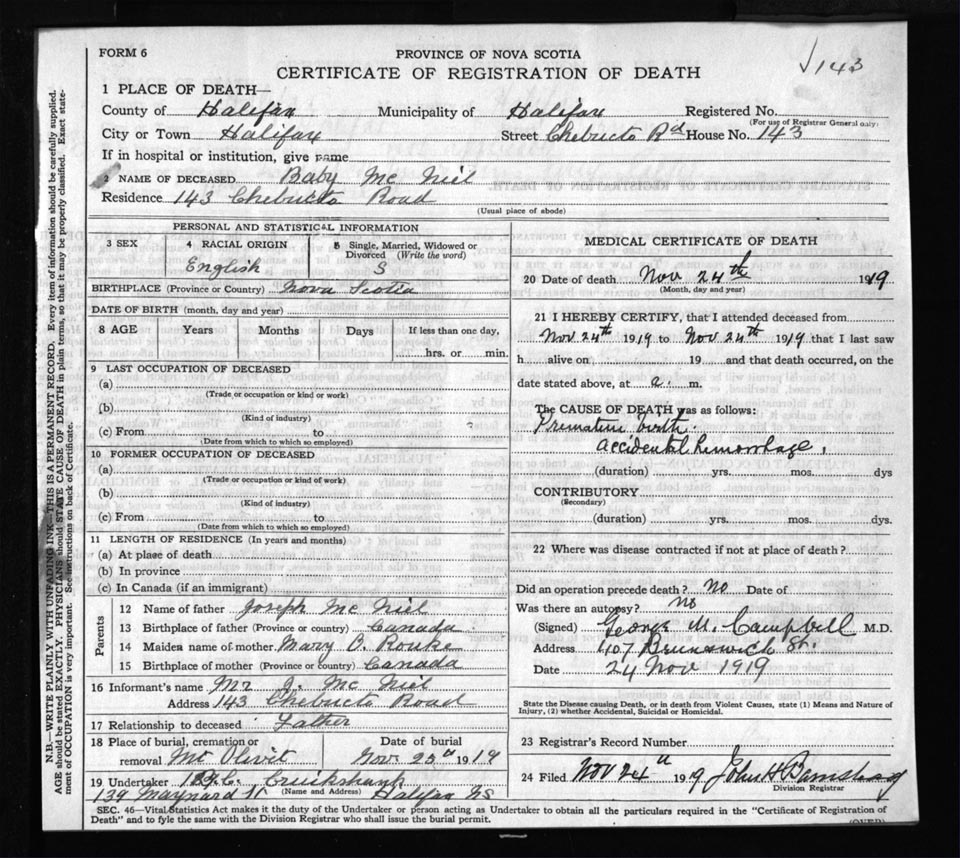 FORM 6
PROVINCE OF NOVA SCOTIA
CERTIFICATE OF REGISTRATION OF DEATH
√143
1 PLACE OF DEATH—
County of Halifax Municipality of Halifax Registered No.
(For use of Registrar General only)
City or Town Halifax Street Chebucto Rd House No. 143
If in hospital or institution, give name
2 NAME OF DECEASED Baby Mc Niel
Residence 143 Chebucto Road
(Usual place of abode)
PERSONAL AND STATISTICAL INFORMATION
3 SEX
4 RACIAL ORIGIN
English
5 Single, Married, Widowed or Divorced (Write the word)
S
BIRTHPLACE (Province or Country) Nova Scotia
DATE OF BIRTH (month, day and year)
8 AGE Years Months Days If less than one day,
hrs. or min.
9 LAST OCCUPATION OF DECEASED
(a)
(Trade or occupation or kind or work)
(b)
(Kind of industry)
(c) From to
(Date from which to which so employed)
10 FORMER OCCUPATION OF DECEASED
(a)
(Trade or occupation or kind of work)
(b)
(Kind of industry)
(c) From to
(Date from which to which so employed)
11 LENGTH OF RESIDENCE (In years and months)
(a) At place of death
(b) In province
(c) In Canada (if an immigrant)
Parents
12 Name of father Joseph Mc Niel
13 Birthplace of father (Province or country) Canada
14 Maiden name of mother Mary O. Rouke
15 Birthplace of mother (Province or country) Canada
16 Informant's name Mr J. Mc Niel
Address 143 Chebucto Road
17 Relationship to deceased Father
18 Place of burial, cremation or removal Mt Olivit
Date of burial Nov. 25th 1919
19 Undertaker Cruikshank
(Name and Address)
139 Maynard St. Halifax NS
MEDICAL CERTIFICATE OF DEATH
20 Date of death Nov 24th 1919
(Month, day and year)
21 I HEREBY CERTIFY, that I attended deceased from
Nov 24th 1919 to Nov 24th 1919 that I last saw
h alive on 19 and that death occurred, on the
date stated above, at a. m.
The CAUSE OF DEATH was as follows:
Premature birth.
accidental hemorrhage.
(duration) yrs. mos. dys
CONTRIBUTORY
(Secondary)
(duration) yrs. mos. dys.
22 Where was disease contracted if not at place of death?
Did an operation precede death? No Date of
Was there an autopsy? No
(Signed) George M. Campbell M.D.
Address 407 Brunswick St.
Date 24 Nov 1919
State the Disease causing Death, or in death from Violent Causes, state (1) Means and Nature of
Injury, (2) whether Accidental, Suicidal or Homicidal.
23 Registrar's Record Number
24 Filed Nov 24th 1919 John H Barnstead
Division Registrar
SEC. 46—Vital Statistics Act makes it the duty of the Undertaker or person acting as Undertaker to obtain all the particulars required in the "Certificate of Registration of
Death" and to fyle the same with the Division Registrar who shall issue the burial permit.
(OVER)
N.B.—WRITE PLAINLY WITH UNFADING INK—THIS IS A PERMANENT RECORD. Every item of information should be carefully supplied.
AGE should be stated EXACTLY. PHYSICIANS should STATE CAUSE OF DEATH in plain terms, so that it may be properly classified. Exact state-
ment of OCCUPATION is very important. See instructions on back of Certificate.